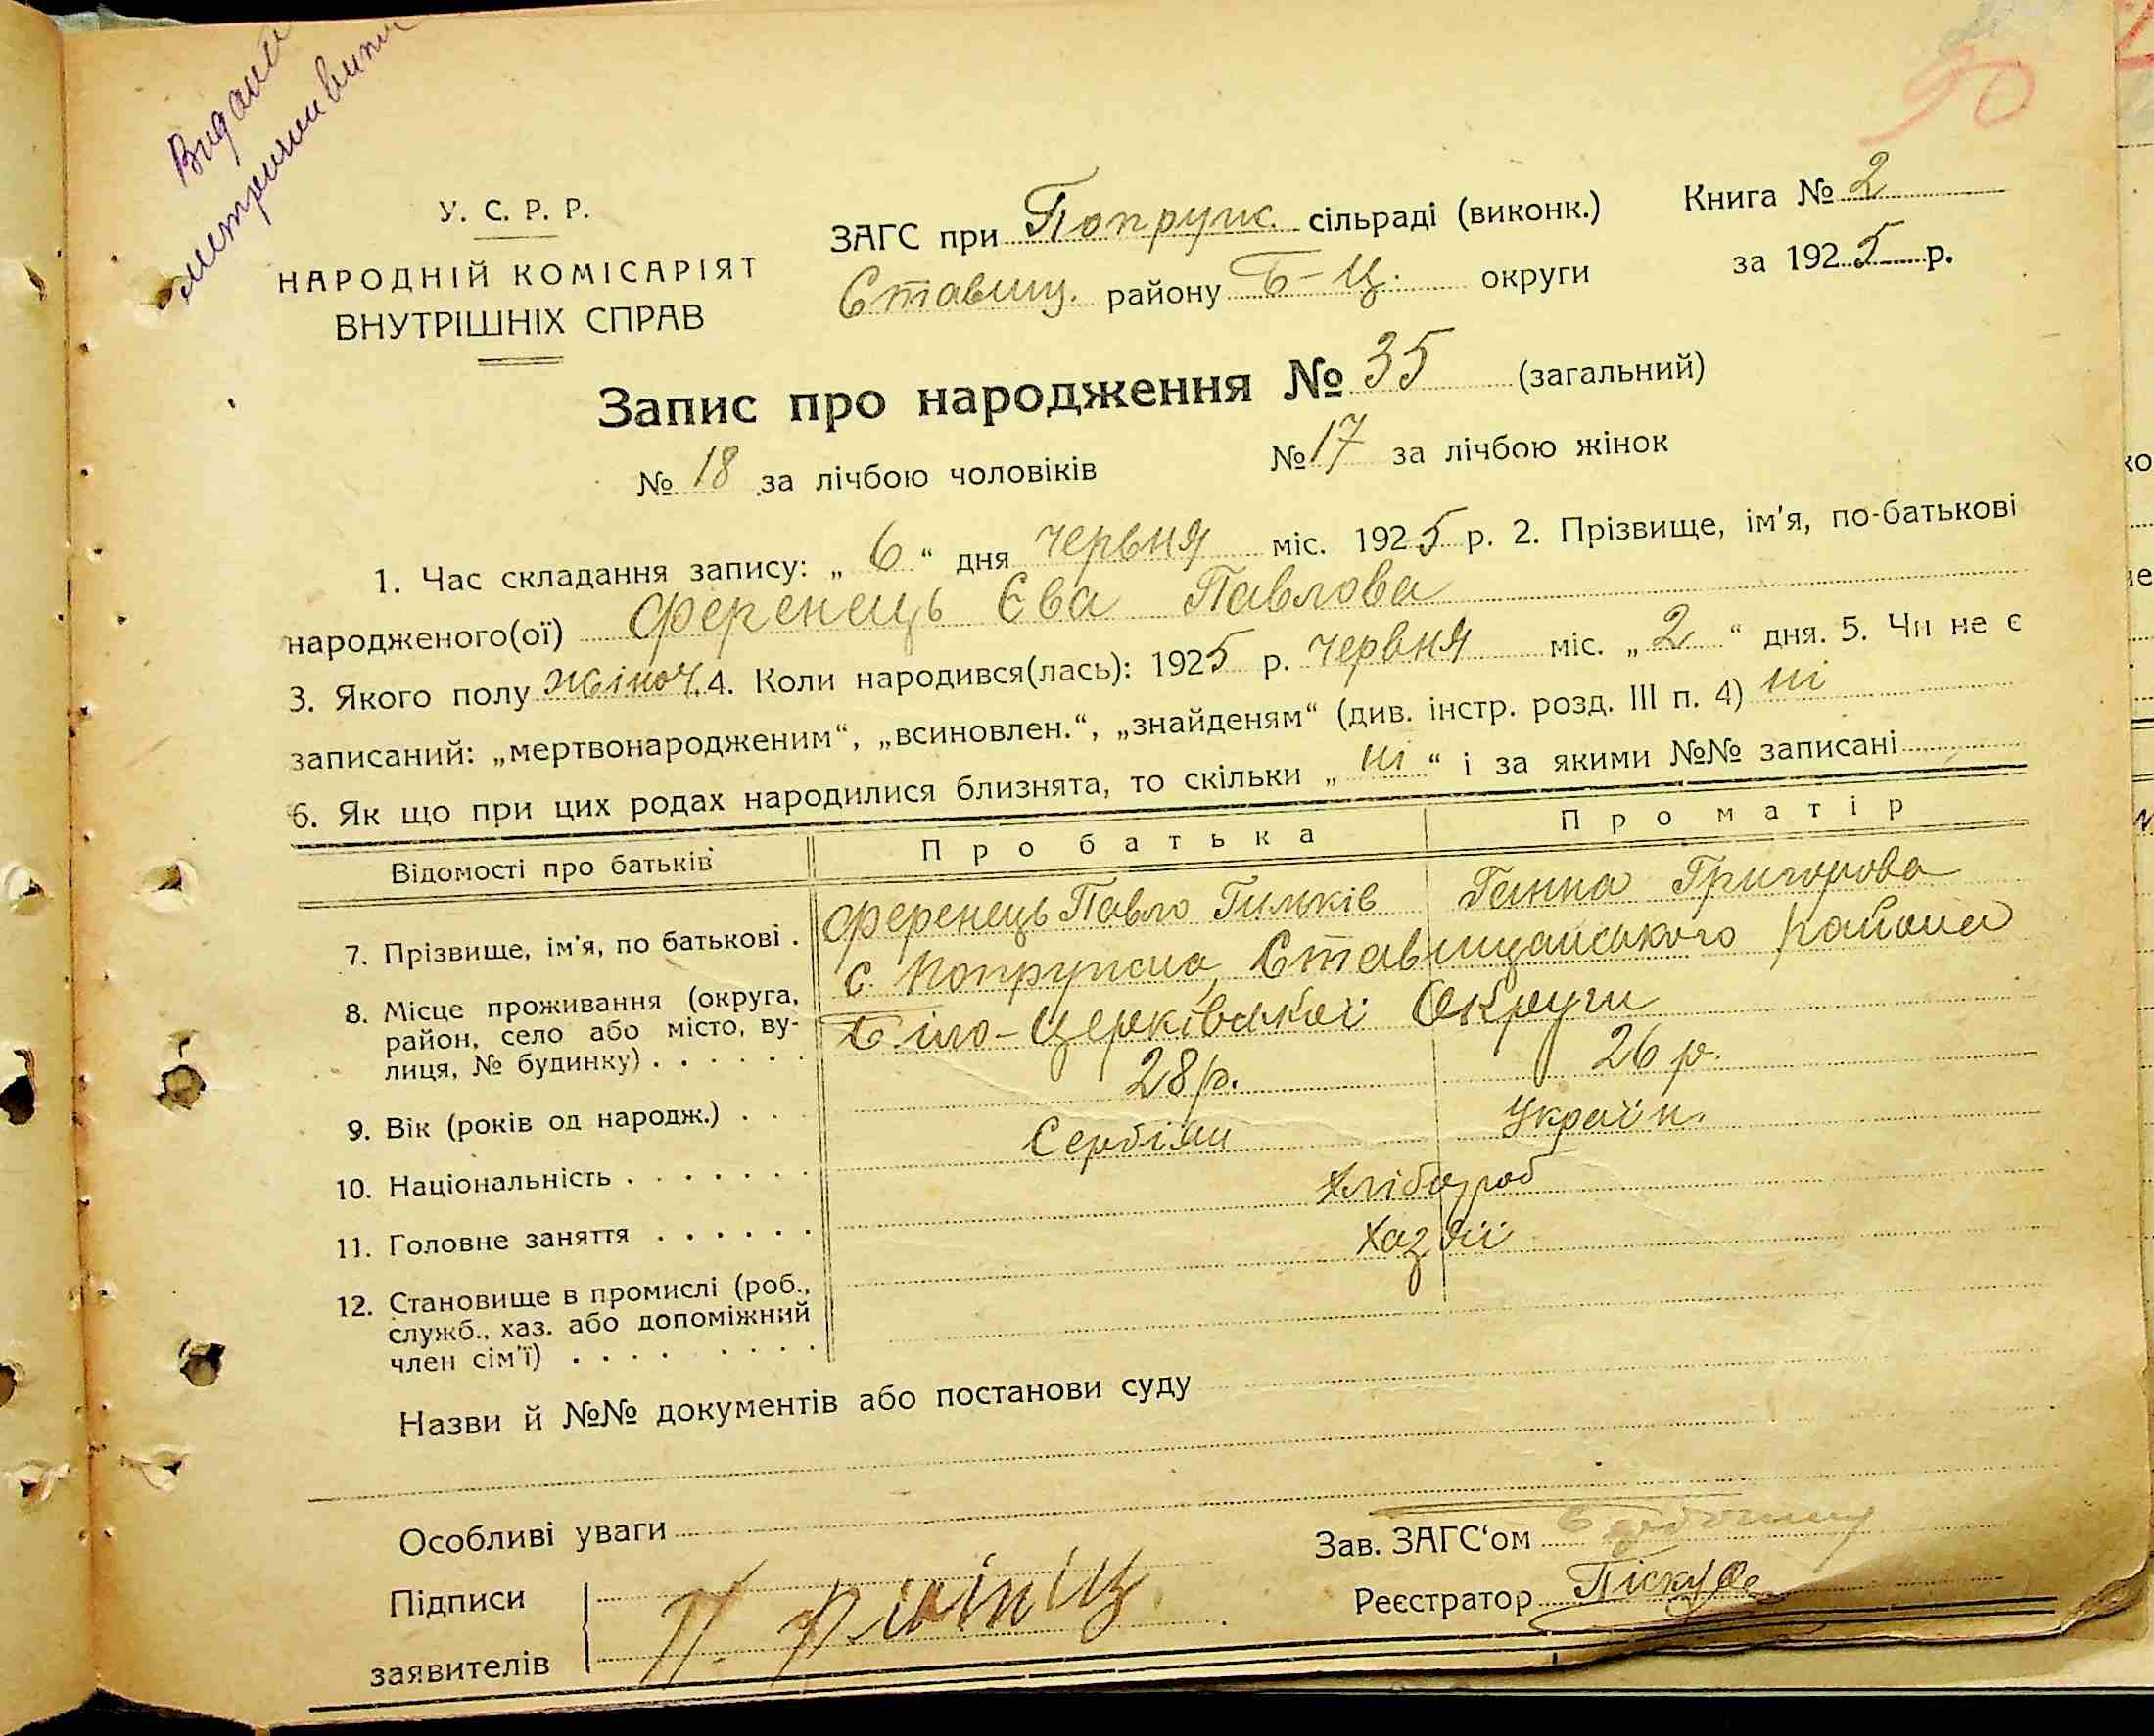 Видани
метричний витяг
90
У. С. Р. Р.
НАРОДНІЙ КОМІСАРІЯТ
ВНУТРІШНІХ СПРАВ
ЗАГС при Попруж. сільраді (виконк.)
Ставищ. району Б-Ц. округи
Книга № 2
за 1925 р.
Запис про народження № 35 (загальний)
№ 18 за лічбою чоловіків № 17 за лічбою жінок
1. Час складання запису: „ 6 “ дня червня міс. 1925 р. 2. Прізвище, ім'я, по-батькові
народженого(ої) Ференець Єва Павлова
3. Якого полу жіноч. 4. Коли народився(лась): 1925 р. червня міс. „ 2 “ дня. 5. Чи не є
записаний: „мертвонародженим“, „всиновлен.“, „знайденям“ (див. інстр. розд. III п. 4) ні
6. Як що при цих родах народилися близнята, то скільки „ ні “ і за якими №№ записані
Відомості про батьків Про батька Про матір
7. Прізвище, ім'я, по батькові . Ференець Павло Гильків Ганна Григорова
8. Місце проживання (округа,
район, село або місто, ву-
лиця, № будинку) . . . . . .
с. Попружна, Ставищанського района
Біло-Церківської Округи
9. Вік (років од народж.) . . . 28 р. 26 р.
10. Національність . . . . . . . Сербіян Україн.
11. Головне заняття . . . . . . Хлібороб
12. Становище в промислі (роб.,
служб., хаз. або допоміжний
член сім'ї) . . . . . . . . .
Хазяї
Назви й №№ документів або постанови суду
Особливі уваги
Зав. ЗАГС'ом
Підписи
заявителів
П.
Реєстратор Піскун